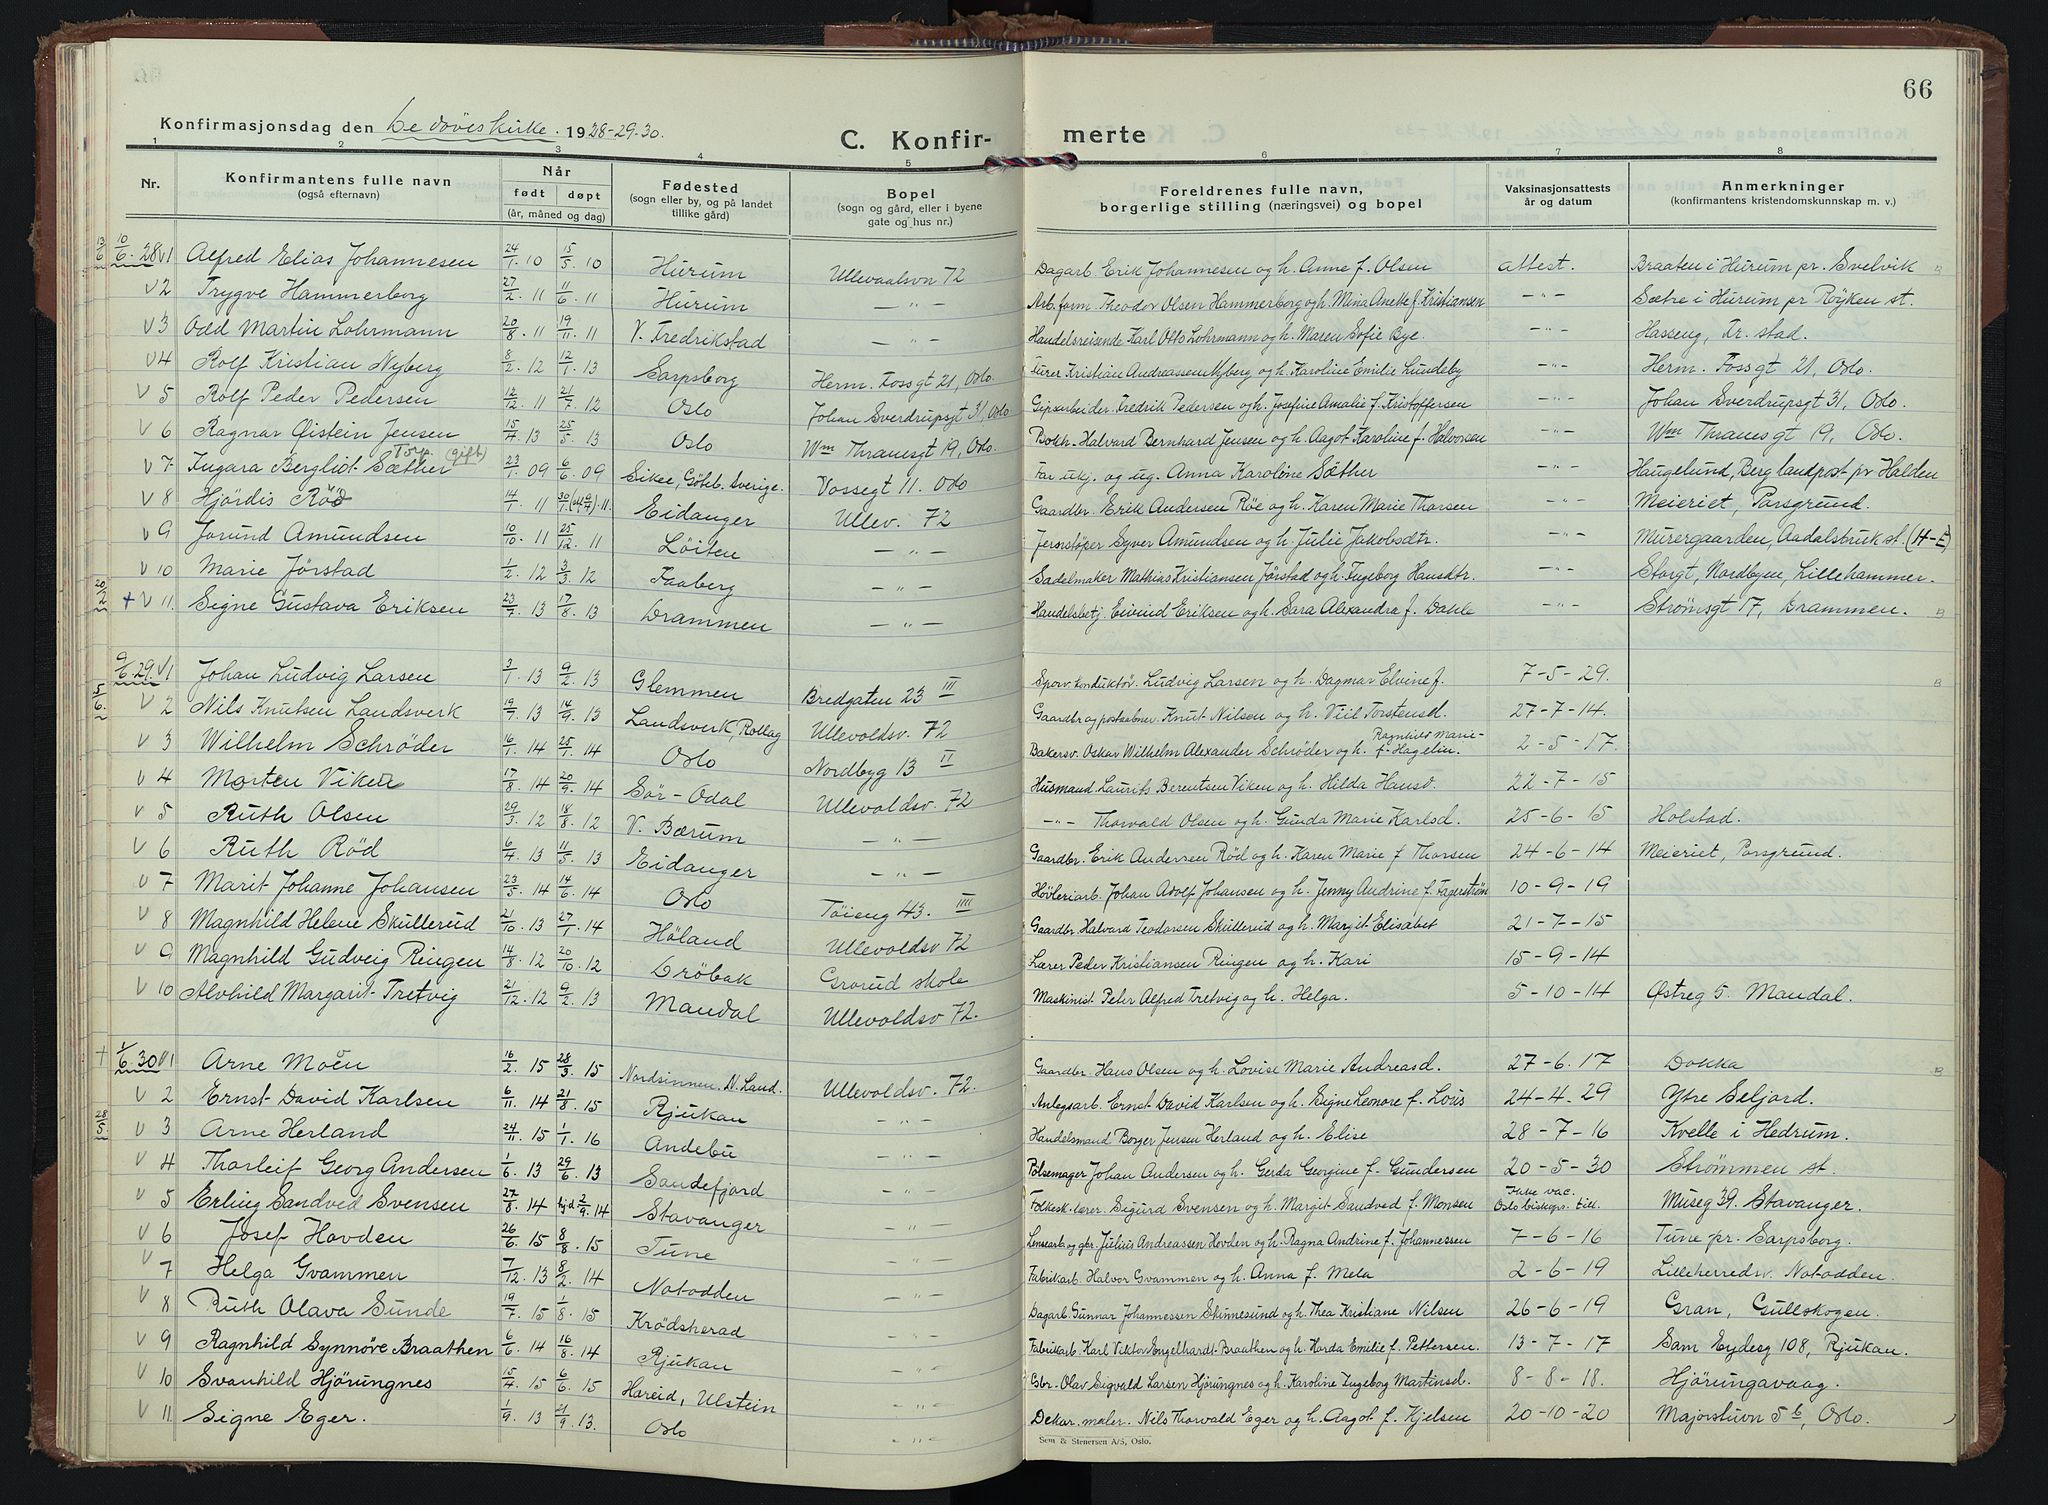 66
Konfirmasjonsdag den De dövės kirke. 1928-29-30.
C. Konfir- merte
1 2 3 4 5 6 7 8
Nr. Konfirmantens fulle navn (også efternavn) Når født døpt (år, måned og dag) Fødested (sogn eller by, og på landet tillike gård) Bopel (sogn og gård, eller i byene gate og hus nr.) Foreldrenes fulle navn, borgerlige stilling (næringsvei) og bopel Vaksinasjonsattests år og datum Anmerkninger (konfirmantens kristendomskunnskap m. v.)
13/6 10/6. 28 v 1 Alfred Elias Johannesen 24/1. 10 15/5. 10 Hurum Ullevaalsvn 72 Dagarb. Erik Johannesen og h. Anne f. Olsen attest. Braaten i Hurum pr. Svelvik B
v 2 Trygve Hammerborg 27/2. 11 11/6. 11 Hurum —"— Arb. form. Theodor Olsen Hammerborg og h. Mina Anette f. Kristiansen —"— Sætre i Hurum pr Røyken st.
v 3 Odd Martin Lohrmann 20/8. 11 19/11. 11 V. Fredrikstad —"— Handelsreisende Karl Otto Lohrmann og h. Maren Sofie Bye. —"— Hasseng, Fr. stad.
v 4 Rolf Kristian Nyberg 8/2. 12 12/1. 13 Sarpsborg Herm. Fossgt 21, Oslo. Furer Kristian Andreassen Nyberg og h. Karoline Emilie Lundeby —"— Herm. Fossgt 21, Oslo.
v 5 Rolf Peder Pedersen 12/12. 11 21/7. 12 Oslo Johan Sverdrupsgt 31, Oslo Gipsarbeider Fredrik Pedersen og h. Josefine Amalie f. Kristoffersen —"— Johan Sverdrupsgt 31, Oslo.
v 6 Ragnar Øistein Jensen 15/4. 13 25/5. 13 Oslo Wm Thranesgt 19, Oslo. Bokh. Halvard Bernhard Jensen og h. Aagot Karoline f. Halvorsen —"— Wm Thranesgt 19, Oslo.
v 7 Ingara Bergliot Sæther Torp (gift) 23/1. 09 6/6. 09 Sikee, Göteb. Sverige. Vossegt 11. Oslo Far ukj. og ug. Anna Karoline Sæther —"— Haugelund, Berg landpost pr Halden
v 8 Hjördis Röd 14/1. 11 30/1. 11 Eidanger Ullev. 72 Gaardbr. Erik Andersen Røe og h. Karen Marie Thorsen —"— Meieriet, Porsgrund.
v 9 Jorund Amundsen 10/10. 11 25/12. 11 Löiten —"— Jernstøper Syver Amundsen og h. Julie Jakobsdtr. —"— Murergaarden, Aadalsbruk st. (H-E)
v 10 Marie Jörstad 1/2. 12 3/3. 12 Faaberg —"— Sadelmaker Mathias Kristiansen Jørstad og h. Ingeborg Hansdtr. —"— Storgt, Nordbyen, Lillehammer.
20/2 + v 11. Signe Gustava Eriksen 23/7. 13 17/8. 13 Drammen —"— Handelsbetj. Eivind Eriksen og h. Sara Alexandra f. Dahle —"— Strömsgt 17, Drammen. B
9/6. 29. v 1 Johan Ludvig Larsen 3/1. 13 9/2. 13 Glemmen Bredgaten 23 III Sporv. konduktör. Ludvig Larsen og h. Dagmar Elvine f. 7-5-29. B
5/6. v 2 Nils Knutsen Landsverk 19/7. 13 14/9. 13 Landsverk, Rollag Ullevoldsv. 72 Gaardbr og postaabner. Knut Nilsen og h. Viil Torstensd. 27-7-14.
v 3 Wilhelm Schröder 16/1. 14 25/1. 14 Oslo Nordbyg 13 II Bakersv. Oskar Wilhelm Alexander Schröder og h. Ragnhild Marie f. Hagelin. 2-5-17.
v 4 Morten Viken 17/8. 14 20/9. 14 Sör-Odal Ullevoldsv. 72 Husmand Laurits Berentsen Viken og h. Hilda Hansd. 22-7-15
v 5 Ruth Olsen 29/3. 12 18/8. 12 V. Bærum —"— —"— Thorvald Olsen og h. Gunda Marie Karlsd. 25-6-15 Holstad.
v 6 Ruth Röd 6/4. 13 11/5. 13 Eidanger —"— Gaardbr. Erik Andersen Röd og h. Karen Marie f. Thorsen 24-6-14 Meieriet, Porsgrund.
v 7 Marit Johanne Johansen 23/5. 14 14/6. 14 Oslo Töieng 43. IIII Hövleriarb. Johan Adolf Johansen og h. Jenny Andrine f. Fagerström 10-9-19
v 8 Magnhild Helene Skullerud 21/10. 13 27/1. 14 Höland Ullevoldsv 72 Gaardbr. Halvard Teodorsen Skullerud og h. Margit Elisabet 21-7-15
v 9 Magnhild Gudveig Ringen 14/8. 12 20/10. 12 Dröbak Grorud skole Lærer Peder Kristiansen Ringen og h. Kari 15-9-14
v 10 Alvhild Margarit Tretvig 21/12. 12 9/2. 13 Mandal Ullevoldsv 72. Maskinist Peter Alfred Tretvig og h. Helga. 5-10-14 Østreg 5. Mandal.
+ 1/6. 30 v 1 Arne Moën 16/2. 15 28/3. 15 Nordsinnen. N. Land. Ullevoldsv. 72. Gaardbr. Hans Olsen og h. Lovise Marie Andreasd. 27-6.17 Dokka B
v 2 Ernst David Karlsen 6/11. 14 21/8. 15 Rjukan —"— Anlegsarb. Ernst David Karlsen og h. Signe Leonore f. Lous 24-4.29 Ytre Seljord.
28/5 v 3 Arne Herland 24/11. 15 1/1. 16 Andebu —"— Handelsmand Borger Jensen Herland og h. Elise 28-7-16 Kvelle i Hedrum.
v 4 Thorleif Georg Andersen 1/6. 13 29/6. 13 Sandefjord —"— Pölsemager Johan Andersen og h. Gerda Georgine f. Gundersen 20-5-30 Strömmen st.
v 5 Erling Sandved Svensen 27/8. 14 hjd 2/9. 14 Stavanger —"— Folkesk. lærer. Sigurd Svensen og h. Margit Sandved f. Monsen Ikke vac. Oslo biskops. till. Museg 39. Stavanger.
v 6 Josef Hovden 26/6. 15 8/8. 15 Tune —"— Lensearb. og gbr. Julius Andreassen Hovden og h. Ragna Andrine f. Johannessen 7-6-16 Tune pr. Sarpsborg.
v 7 Helga Gvammen 7/12. 13 8/2. 14 Notodden —"— Fabrikarb. Halvor Gvammen og h. Anna f. Mela 2-6-19 Lilleherredsv. Notodden.
v 8 Ruth Olava Sunde 19/7. 15 1/8. 15 Krödsherad —"— Dagarb. Gunnar Johannessen Skinnesund og h. Thea Kristiane Nilsen 26-6-19 Gran, Gullskogen.
v 9 Ragnhild Synnöve Braathen 6/6. 14 16/8. 14 Rjukan —"— Fabrikarb. Karl Viktor Engelhardt Braathen og h. Horda Emilie f. Pettersen. 13-7-17 Sam Eydesg 108, Rjukan.
v 10 Svanhild Hjörungnes 15/4. 15 6/6. 15 Hareid, Ulstein —"— Gbr. Olav Sigvald Larsen Hjörungnes og h. Karoline Ingeborg Martinsd. 8-8-18. Hjörungavaag.
v 11 Signe Eger. 1/9. 13 21/9. 13. Oslo —"— Dekor. maler. Nils Thorvald Eger og h. Aagot f. Kjelsen 20-10-20 Majorstuvn 5b, Oslo.
Sem & Stenersen A/S, Oslo.